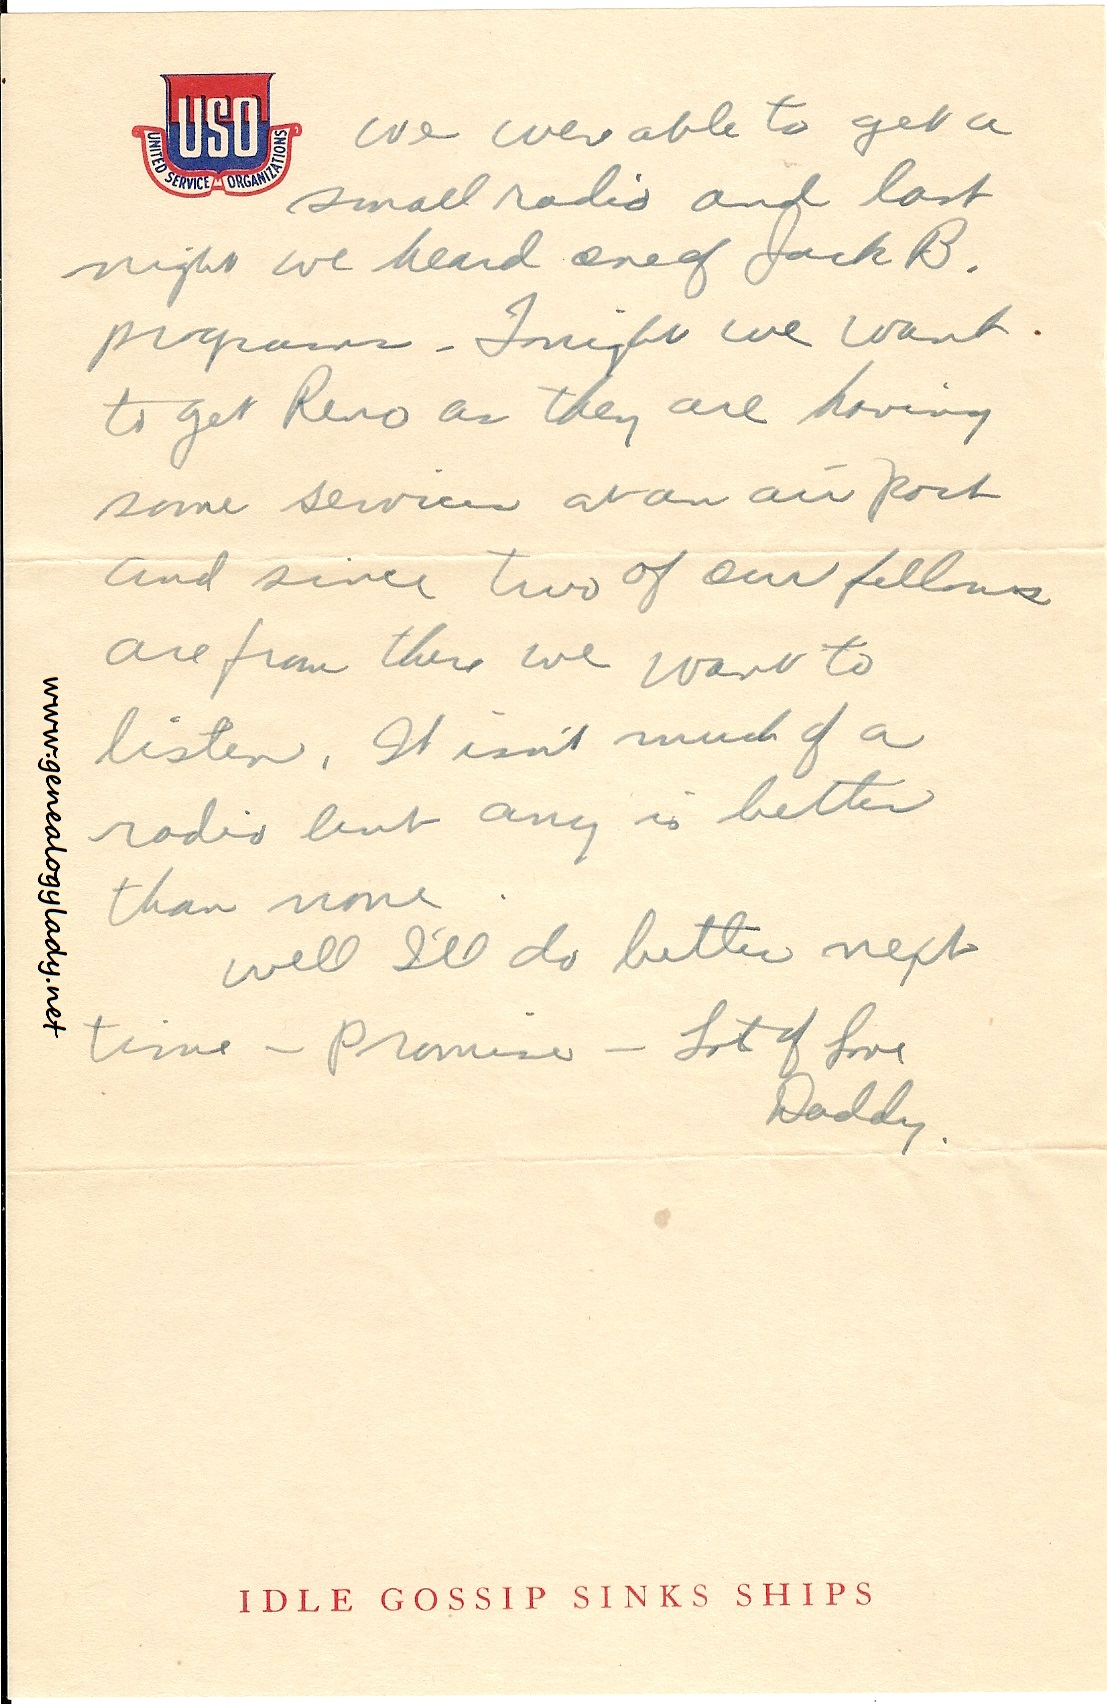 USO
UNITED SERVICE ORGANIZATIONS
we were able to get a
small radio and last
night we heard one of Jack B.
programs - Tonight we want
to get Reno as they are having
some services at an air port
and since two of our fellows
are from there we want to
listen. It isn't much of a
radio but any is better
than none.
well I'll do better next
time - Promise - Lot of Love
Daddy.
www.genealogylady.net
IDLE GOSSIP SINKS SHIPS